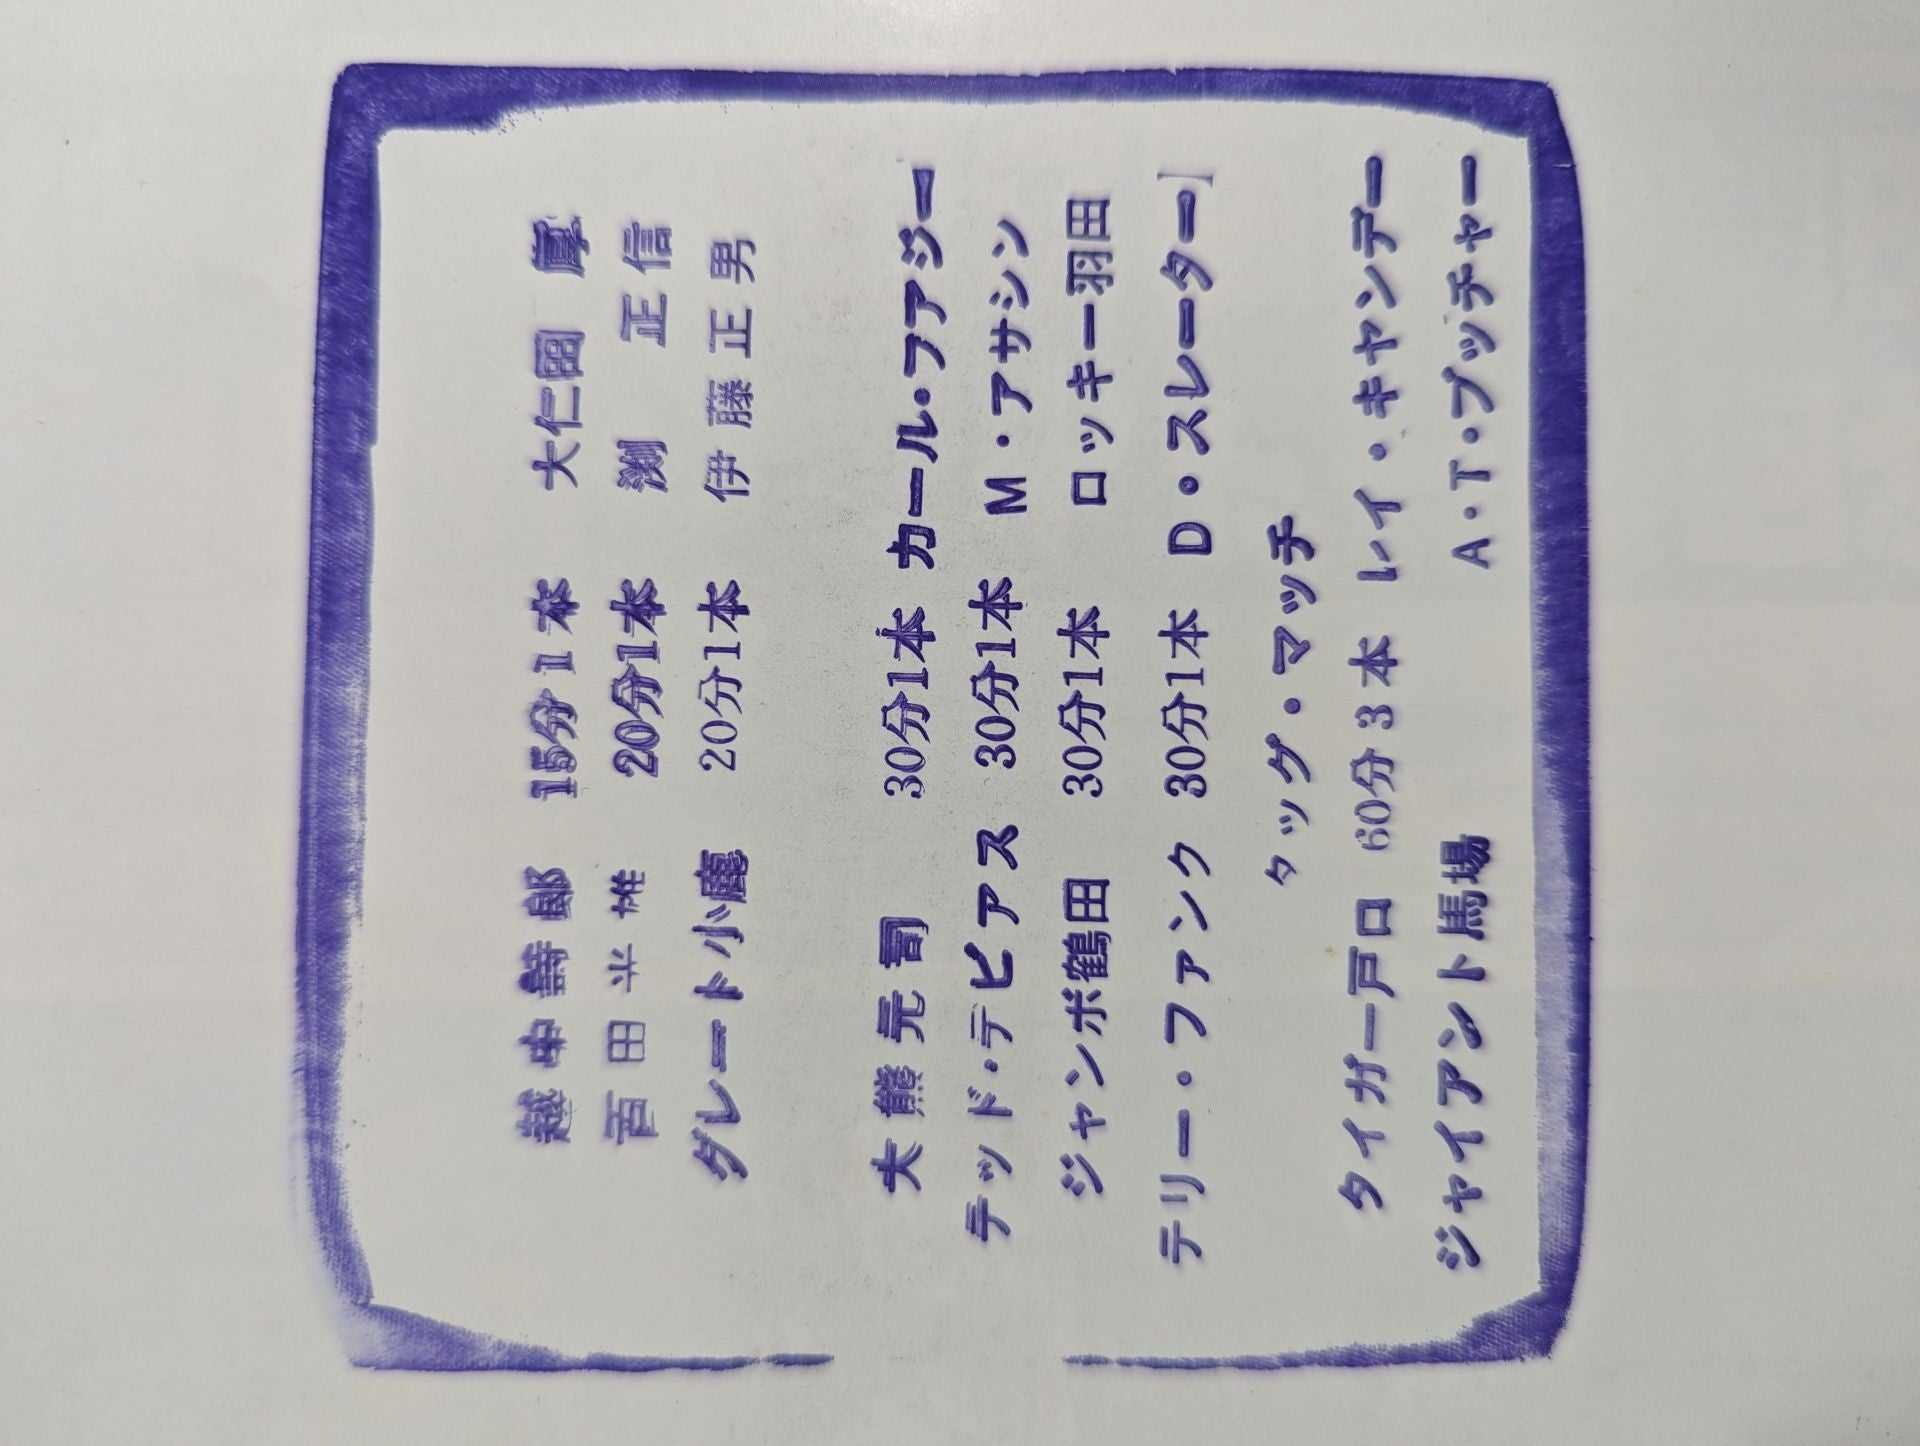 越中詩郎 15分1本 大仁田厚
百田光雄 20分1本 渕正信
グレート小鹿 20分1本 伊藤正男
大熊元司 30分1本 カール・フアジー
テッド・デビアス 30分1本 M・アサシン
ジャンボ鶴田 30分1本 ロッキー羽田
テリー・ファンク 30分1本 D・スレーター
タッグ・マッチ
タイガー戸口 60分3本 レイ・キャンデー
ジャイアント馬場 A・T・ブッチャー